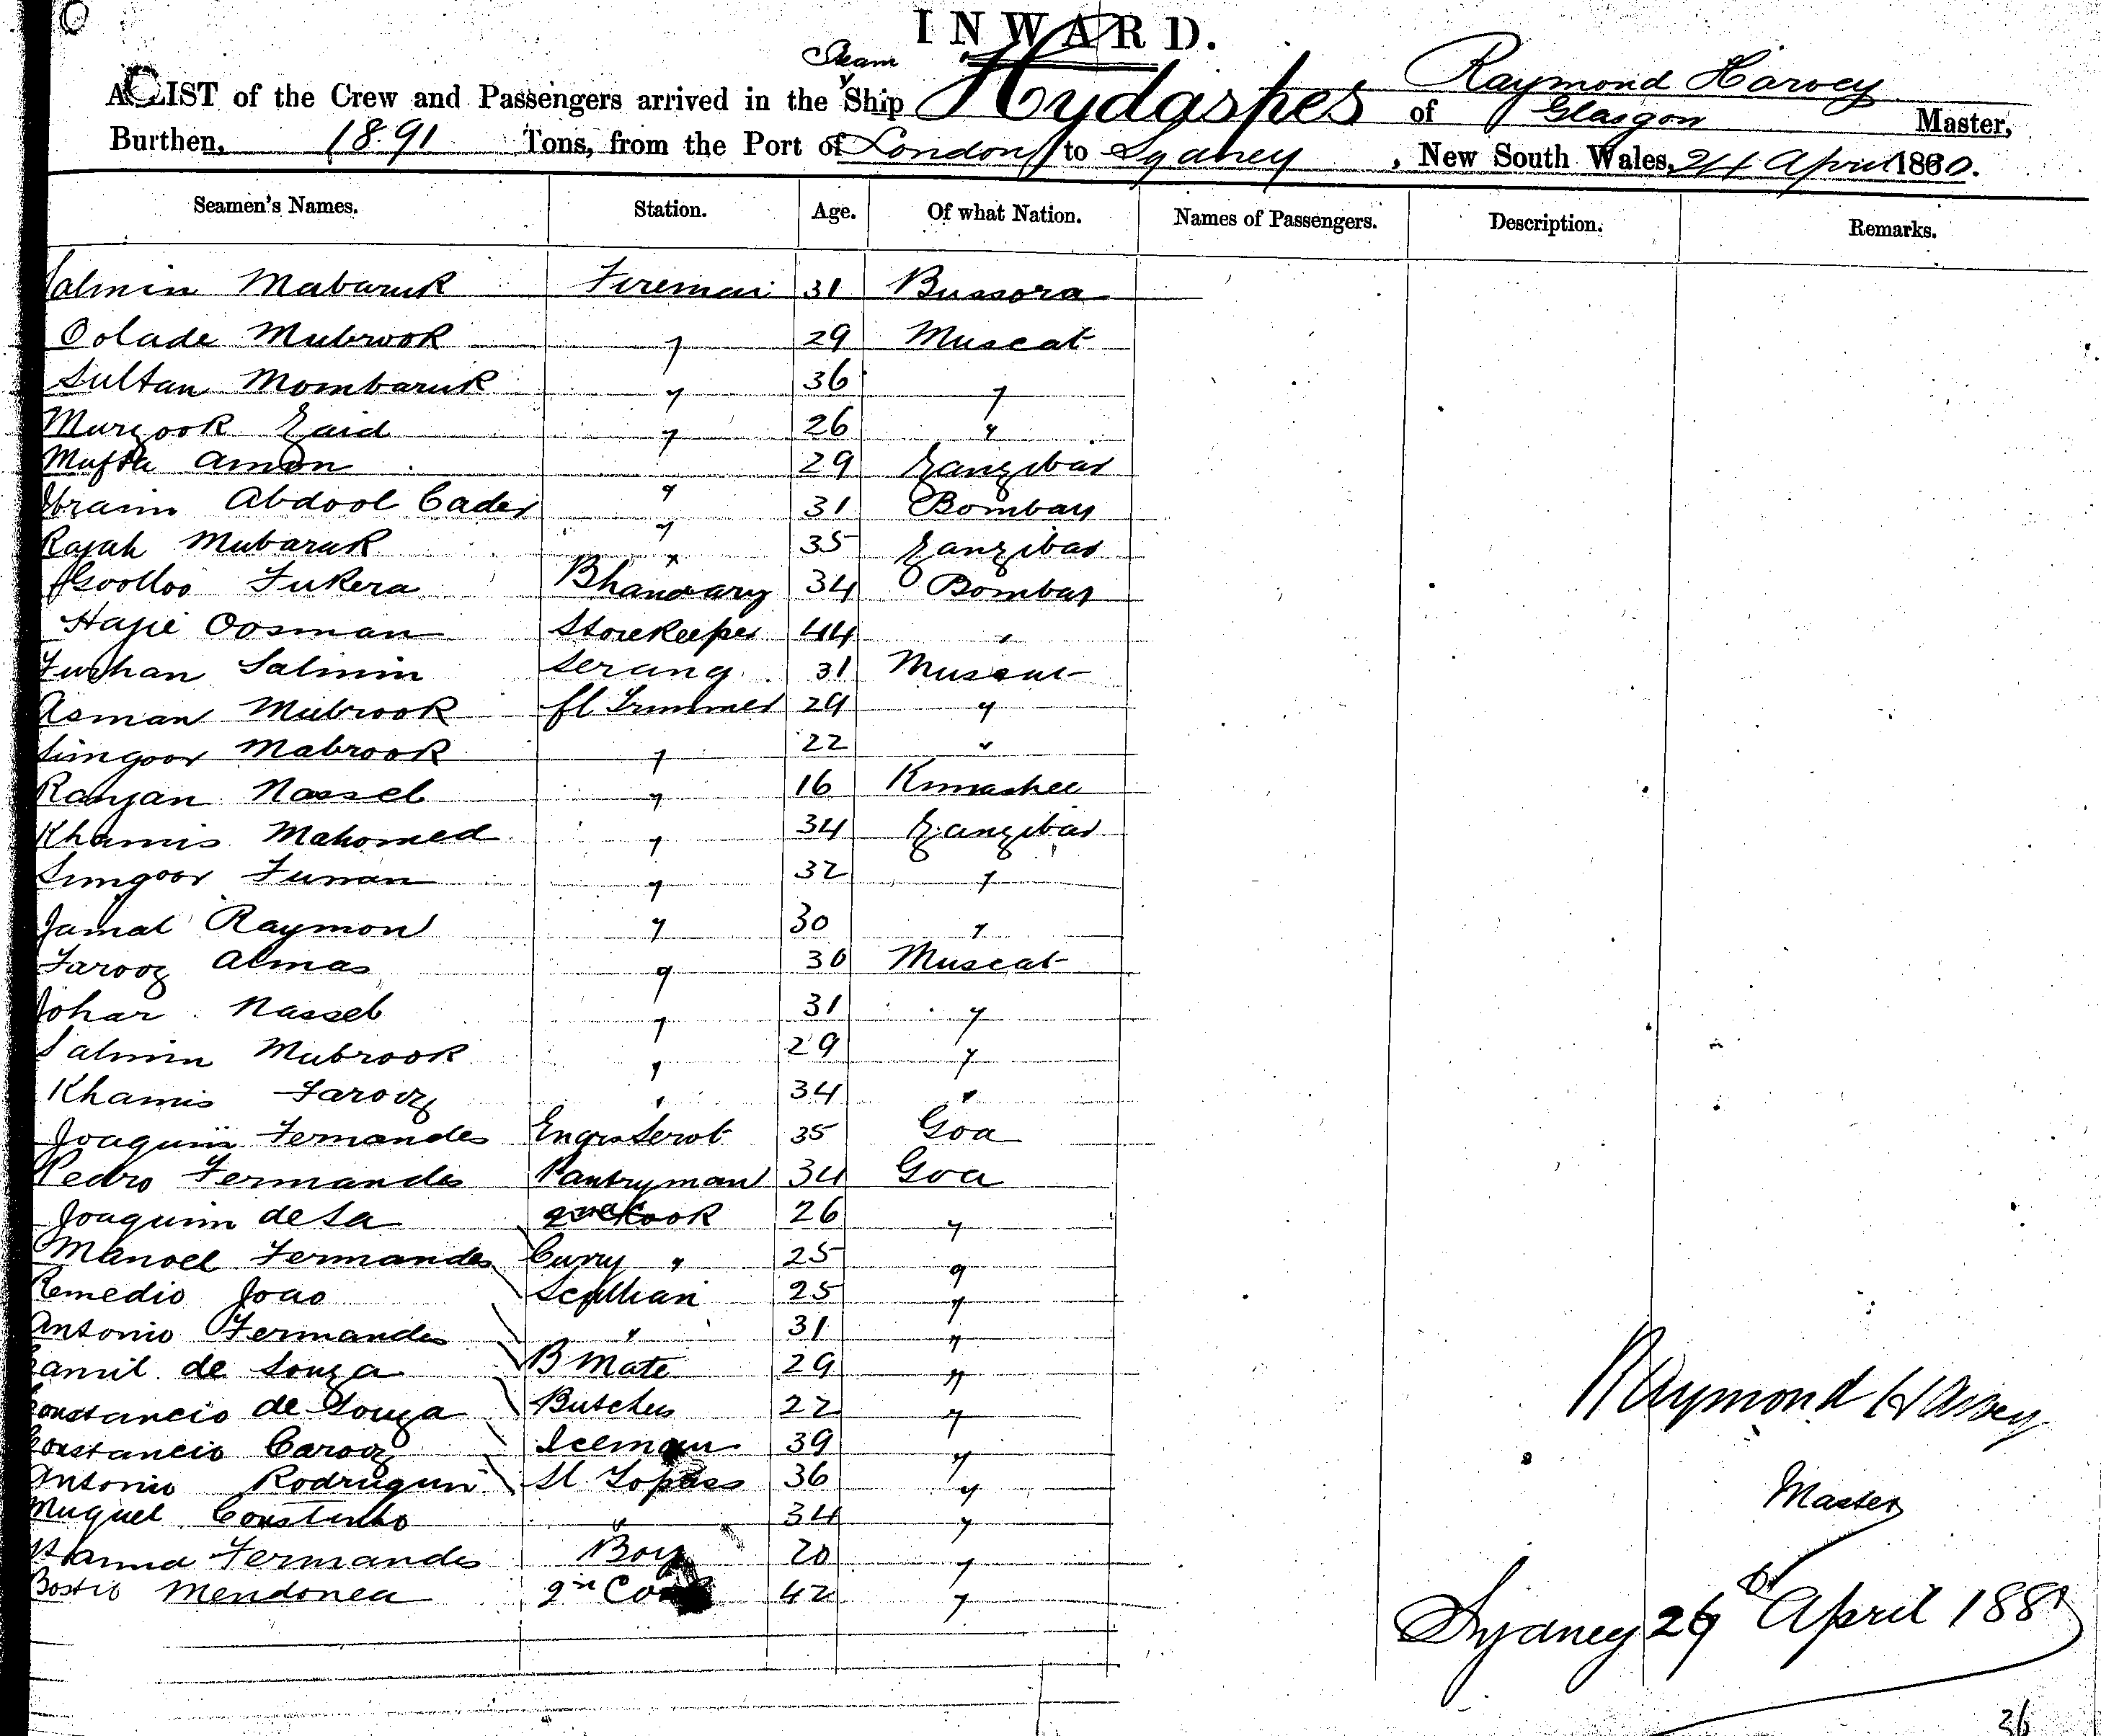 INWARD.
Steam Raymond Harvey
A LIST of the Crew and Passengers arrived in the Ship Hydaspes of Glasgow Master,
Burthen, 1891 Tons, from the Port of London to Sydney, New South Wales, April 1880.
Seamen's Names. Station. Age. Of what Nation. Names of Passengers. Description. Remarks.
Salmin Mabaruk Fireman 31 Bussora
Oolade Mubrook " 29 Muscat
Sultan Mombaruk " 36 "
Murzook Zaid " 26 "
Mufta Amon " 29 Zanzibar
Ibraim Abdool Cader " 31 Bombay
Rajah Mubaruk " 35 Zanzibar
Goolloo Fukera Bhandary 34 Bombay
Hajie Oosman Storekeeper 44 "
Furhan Salmin Serang 31 Muscat
Asman Mubrook Cl Trimmer 29 "
Simgoor Mabrook " 22 "
Ranjan Nasseb " 16
Khamis Mahomed " 34 Zanzibar
Simgoor Funan " 32 "
Jamal Raymon " 30 "
Farooz Almas " 30 Muscat
Johar Nasseb " 31 "
Salmin Mubrook " 29 "
Khamis Farooz " 34 "
Joaquim Fernandes Engrs Servt 35 Goa
Pedro Fernandes Pantryman 34 Goa
Joaquim de Sa 2nd Cook 26 "
Manoel Fernandes Curry " 25 "
Remedio Joao Scullian 25 "
Antonio Fernandes " 31 "
Camil de Souza B Mate 29 "
Constancio de Souza Butcher 22 "
Constancio Caroz Iceman 39 "
Antonio Rodrugun Topass 36 "
Muquel Coustinho " 34 "
Fernandes Boy 20 "
Bostio Mendonca Cook 42 "
Raymond Harvey
Master
Sydney April 188
36